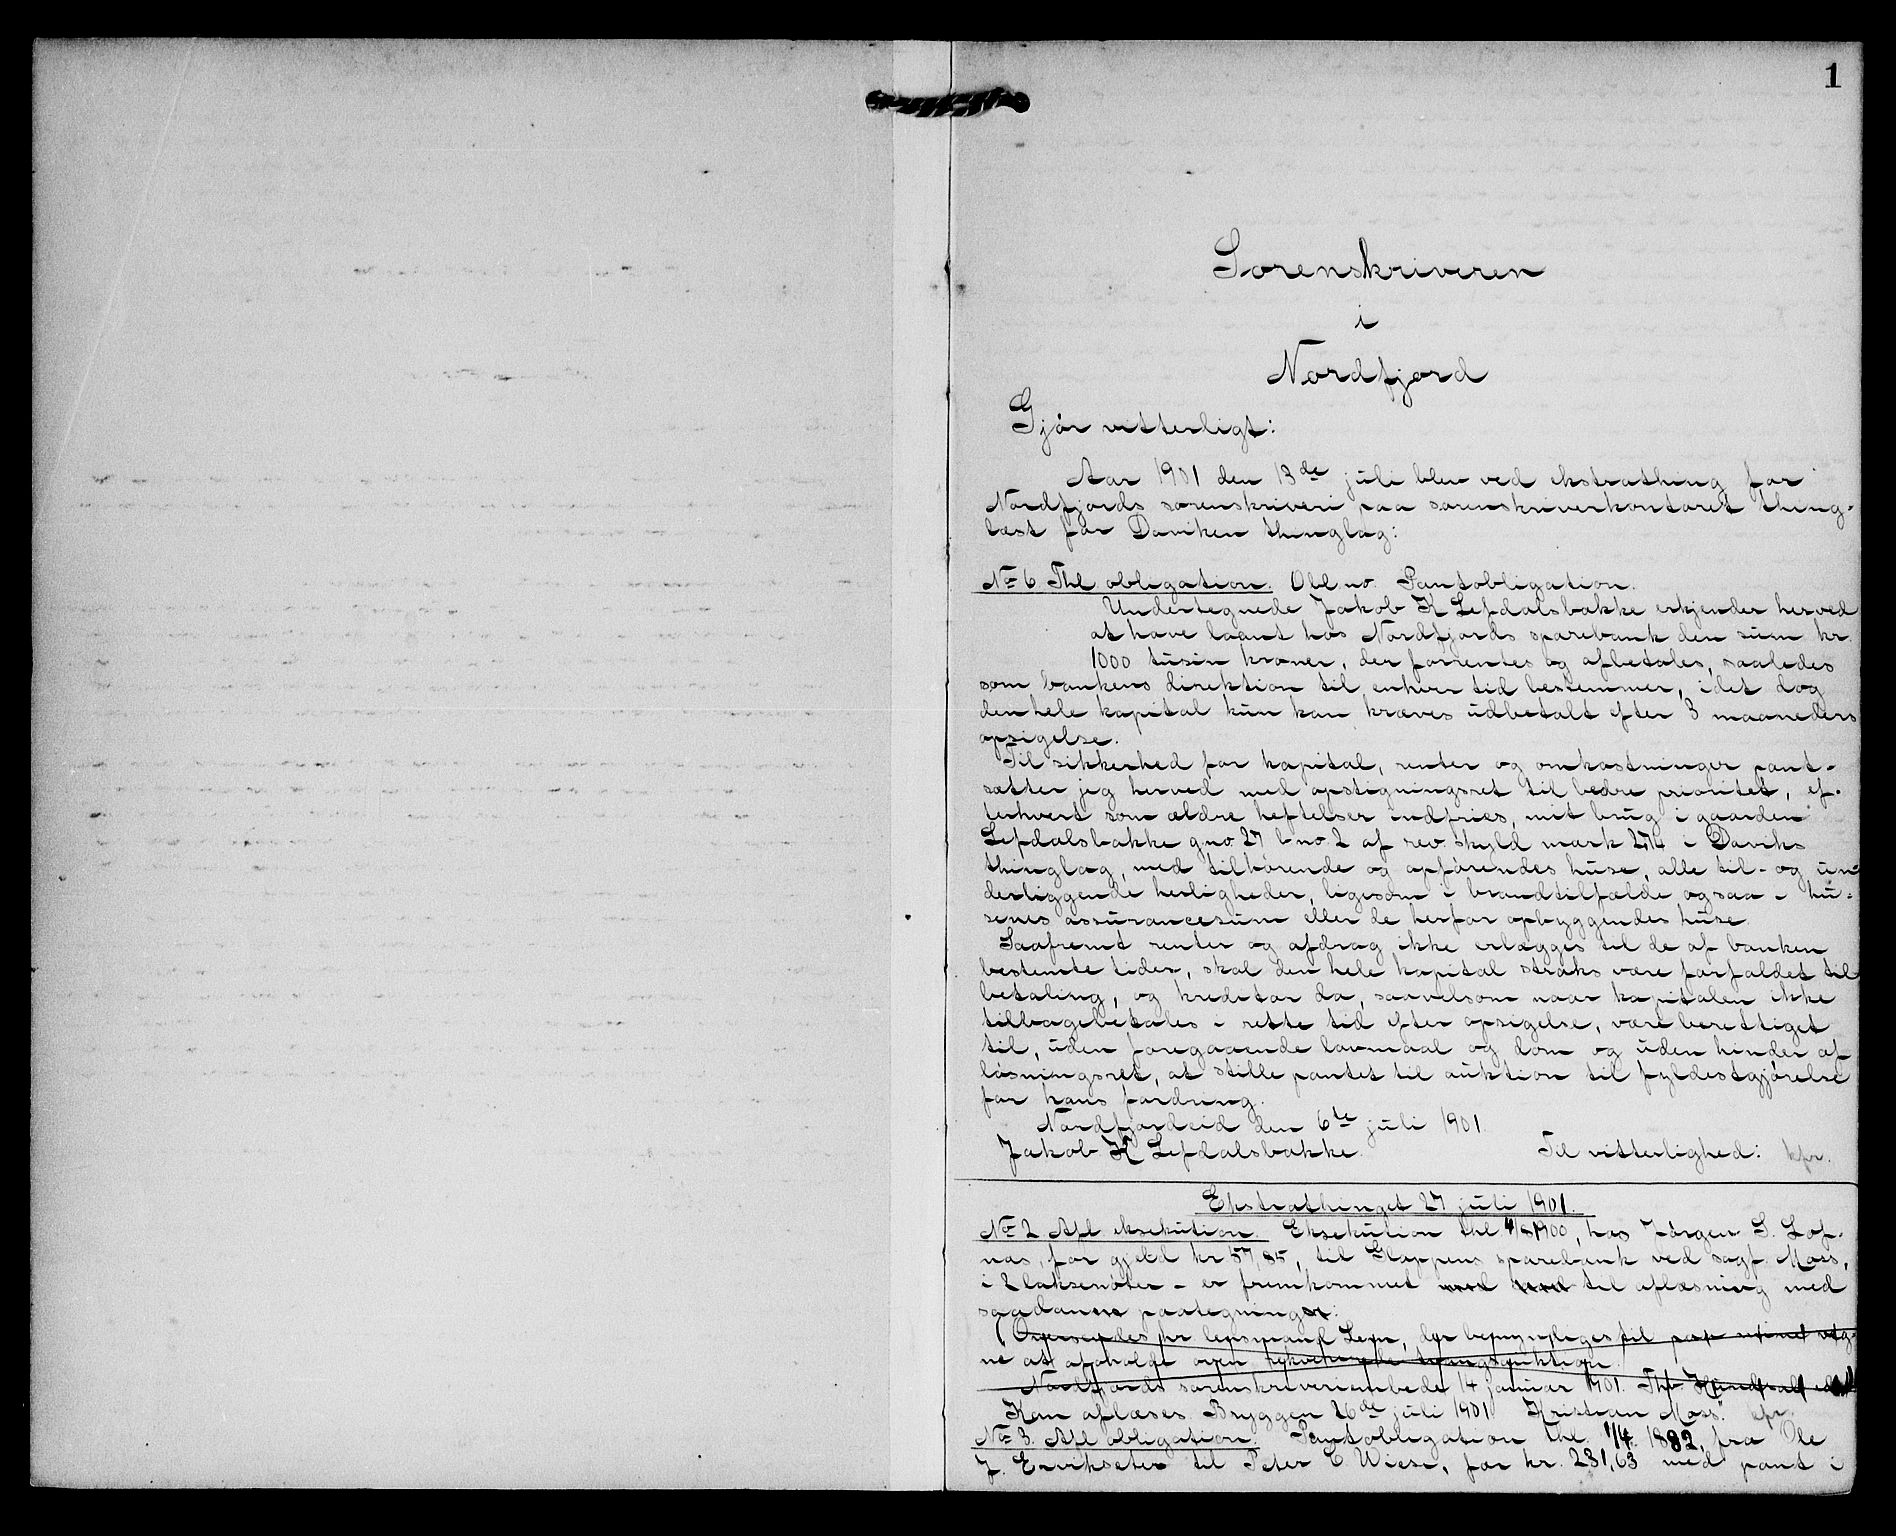 1
Sorenskriveren
i
Nordfjord
Gjør vitterligt:
Aar 1901 den 13de juli blev ved ekstrathing for
Nordfjords sorenskriveri paa sorenskriverkontoret thing-
læst for Daviken thinglag:
No 6 Thl obligation. Obl no. Pantobligation.
Undertegnede Jakob K Lefdalsbakke erkjender herved
at have laant hos Nordfjords sparebank den sum kr.
1000 tusin kroner, der forrentes og afbetales, saaledes
som bankens direktion til enhver tid bestemmer, idet dog
den hele kapital kun kan kræves udbetalt efter 3 maaneders
opsigelse.
Til sikkerhed for kapital, renter og omkostninger pant-
sætter jeg herved med opstigningsret til bedre prioritet, ef-
terhvert som ældre heftelser indfries, mit brug i gaarden
Lefdalsbakke gno 27 bno 2 af rev. skyld mark i Daviks
thinglag, med tilhørende og opførendes huse, alle til- og un-
derliggende herligheder, ligesom i brandtilfælde ogsaa i hu-
senes assurancesum eller de herfor opbyggendes huse.
Saafremt renter og afdrag ikke erlægges til de af banken
bestemte tider, skal den hele kapital straks være forfaldet til
betaling, og kreditor da, saavelsom naar kapitalen ikke
tilbagebetales i rette tid efter opsigelse, være berettiget
til, uden foregaaende lovmaal og dom og uden hinder af
løsningsret, at stille pantet til auktion til fyldestgjørelse
for hans fordring.
Nordfjordeid den 6te juli 1901.
Jakob K Lefdalsbakke. Til vitterlighed: kfr.
Ekstrathinget 27 juli 1901.
No 2 Afl eksekution. Eksekution thl 4/8 1900, hos Jørgen S. Lof-
nas, for gjeld kr 57,85, til Gloppens sparebank ved sagf. Moss,
i 2 laksenøter - er fremkommet til aflæsning med
saadan paategning:
Oversendes hr lensmand Lem, der bemyndiges til paa mine veg-
ne at afholde tvangsauktion.
Nordfjords sorenskriveriembede 14 januar 1901. Thr
Kan aflæses. Bryggen 26de juli 1901 Kristian Moss. kfr.
No 3. Afl obligation. Pantobligation thl. 1/4 1882, fra Ole
J. Erviksæter til Peter C Wiese, for kr. 231,63 med pant i